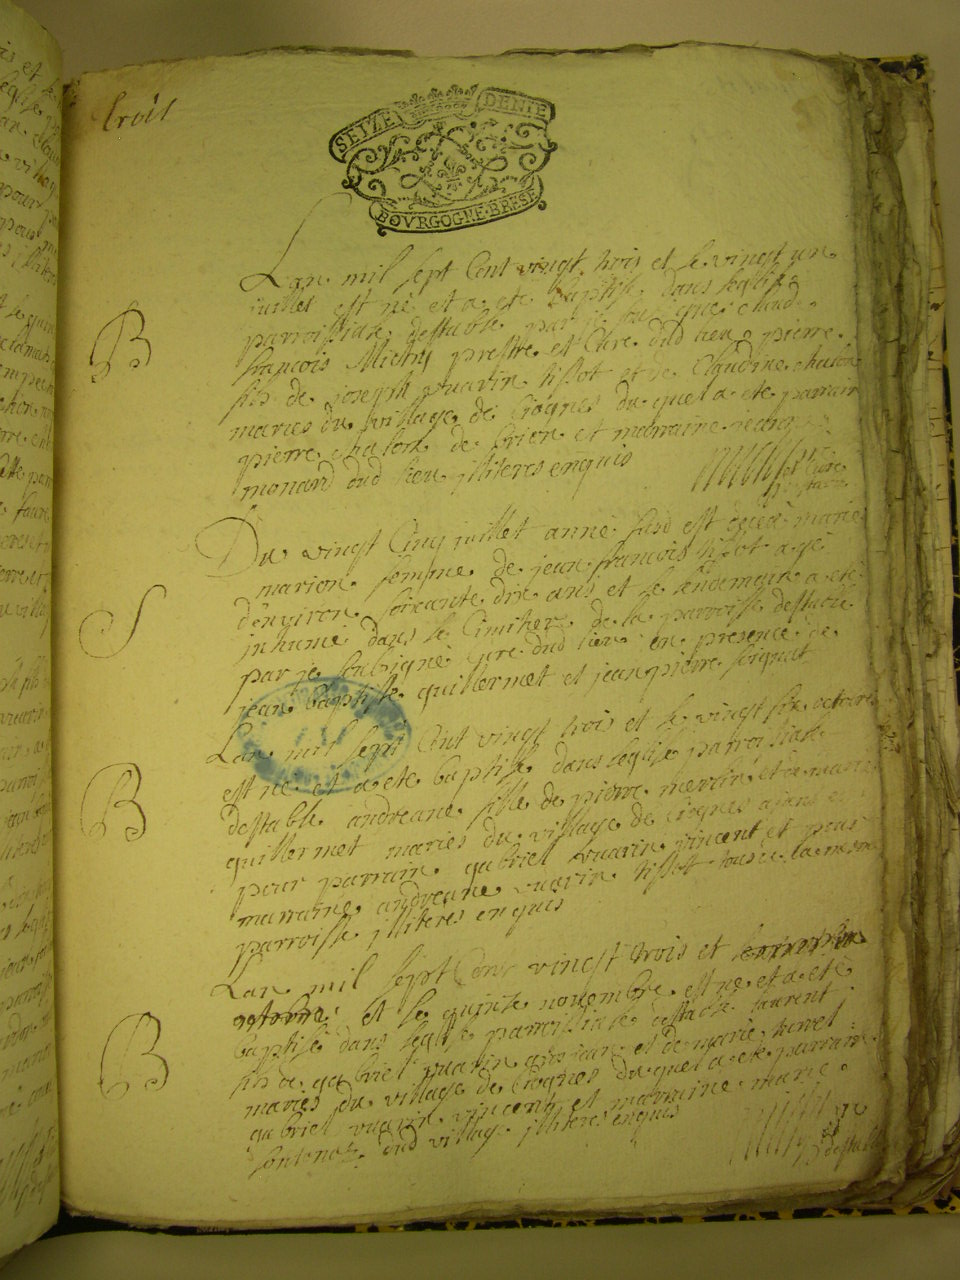 troi
SEIZE DENIE
BOVRGOGNE·BRESE
Lan mil sept Cent vingt trois et le vingt un
juillet est né et a ete baptisé dans leglise
parroissiale destable par je soussigne claude
francois Mictry prestre et Cure dud lieu pierre
B
fils de joseph vuarin tissot et de Claudine chaton
maries du village de Crognes du quel a ete parrain
pierre chaton de brien et marraine jeanne
monard dud lieu illiteres enquis
et Cure
Du vingt Cinq juillet anne susd est decede marie
marion femme de jean francois tissot agé
denviron soixante dix ans et le lendemain a ete
S
inhumé dans le Cimitiere de la parroisse destable
par je soubsigné cure dud lieu en presence de
jean baptiste guillermet et jean pierre soignat
Lan mil sept Cent vingt trois et le vingt six octobre
est ne et a ete baptise dans leglise parroissiale
destable andreane fille de pierre mercier et de marie
B
guillermet maries du village de Crognes ajant eu
pour parrain gabriel vuarin vincent et pour
marraine andreane vuarin tissot tous de la mesme
parroisse illiteres enquis
Lan mil sept Cent vingt trois et
octobre et le quinze novembre est ne et a ete
baptisé dans leglise parroissiale destable laurent
B
fils de gabriel vuarin et de marie
maries du village de Crognes du quel a ete parrain
gabriel vuarin vincent et marraine marie
dud village illiteres enquis